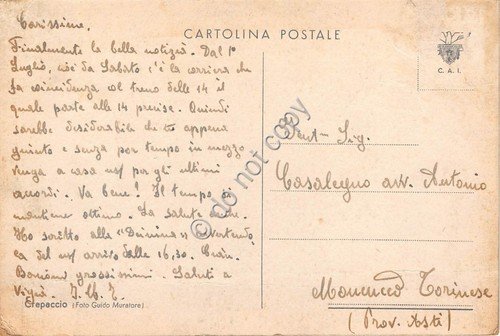 Carissime,
Finalmente la bella notizia. Dal 1°
Luglio, cioè da Sabato c'è la corriera che
fa coincidenza col treno delle 14 il
quale parte alle 14 precise. Quindi
sarebbe desiderabile che tu appena
giunto e senza por tempo in mezzo
venga a casa ns/ per gli ultimi
accordi. Va bene? Il tempo si
mantiene ottimo. La salute anche.
Ho scritto alla "Divina" avvertendo
la del ns/ arrivo dalle 16,30. Ciao.
Bacioni grossissimi. Saluti a
Crepaccio (Foto Guido Muratore)
CARTOLINA POSTALE
C. A. I.
Gent. Sig.
Casalegno avv. Antonio
Moncucco Torinese
(Prov. Asti)
do not copy